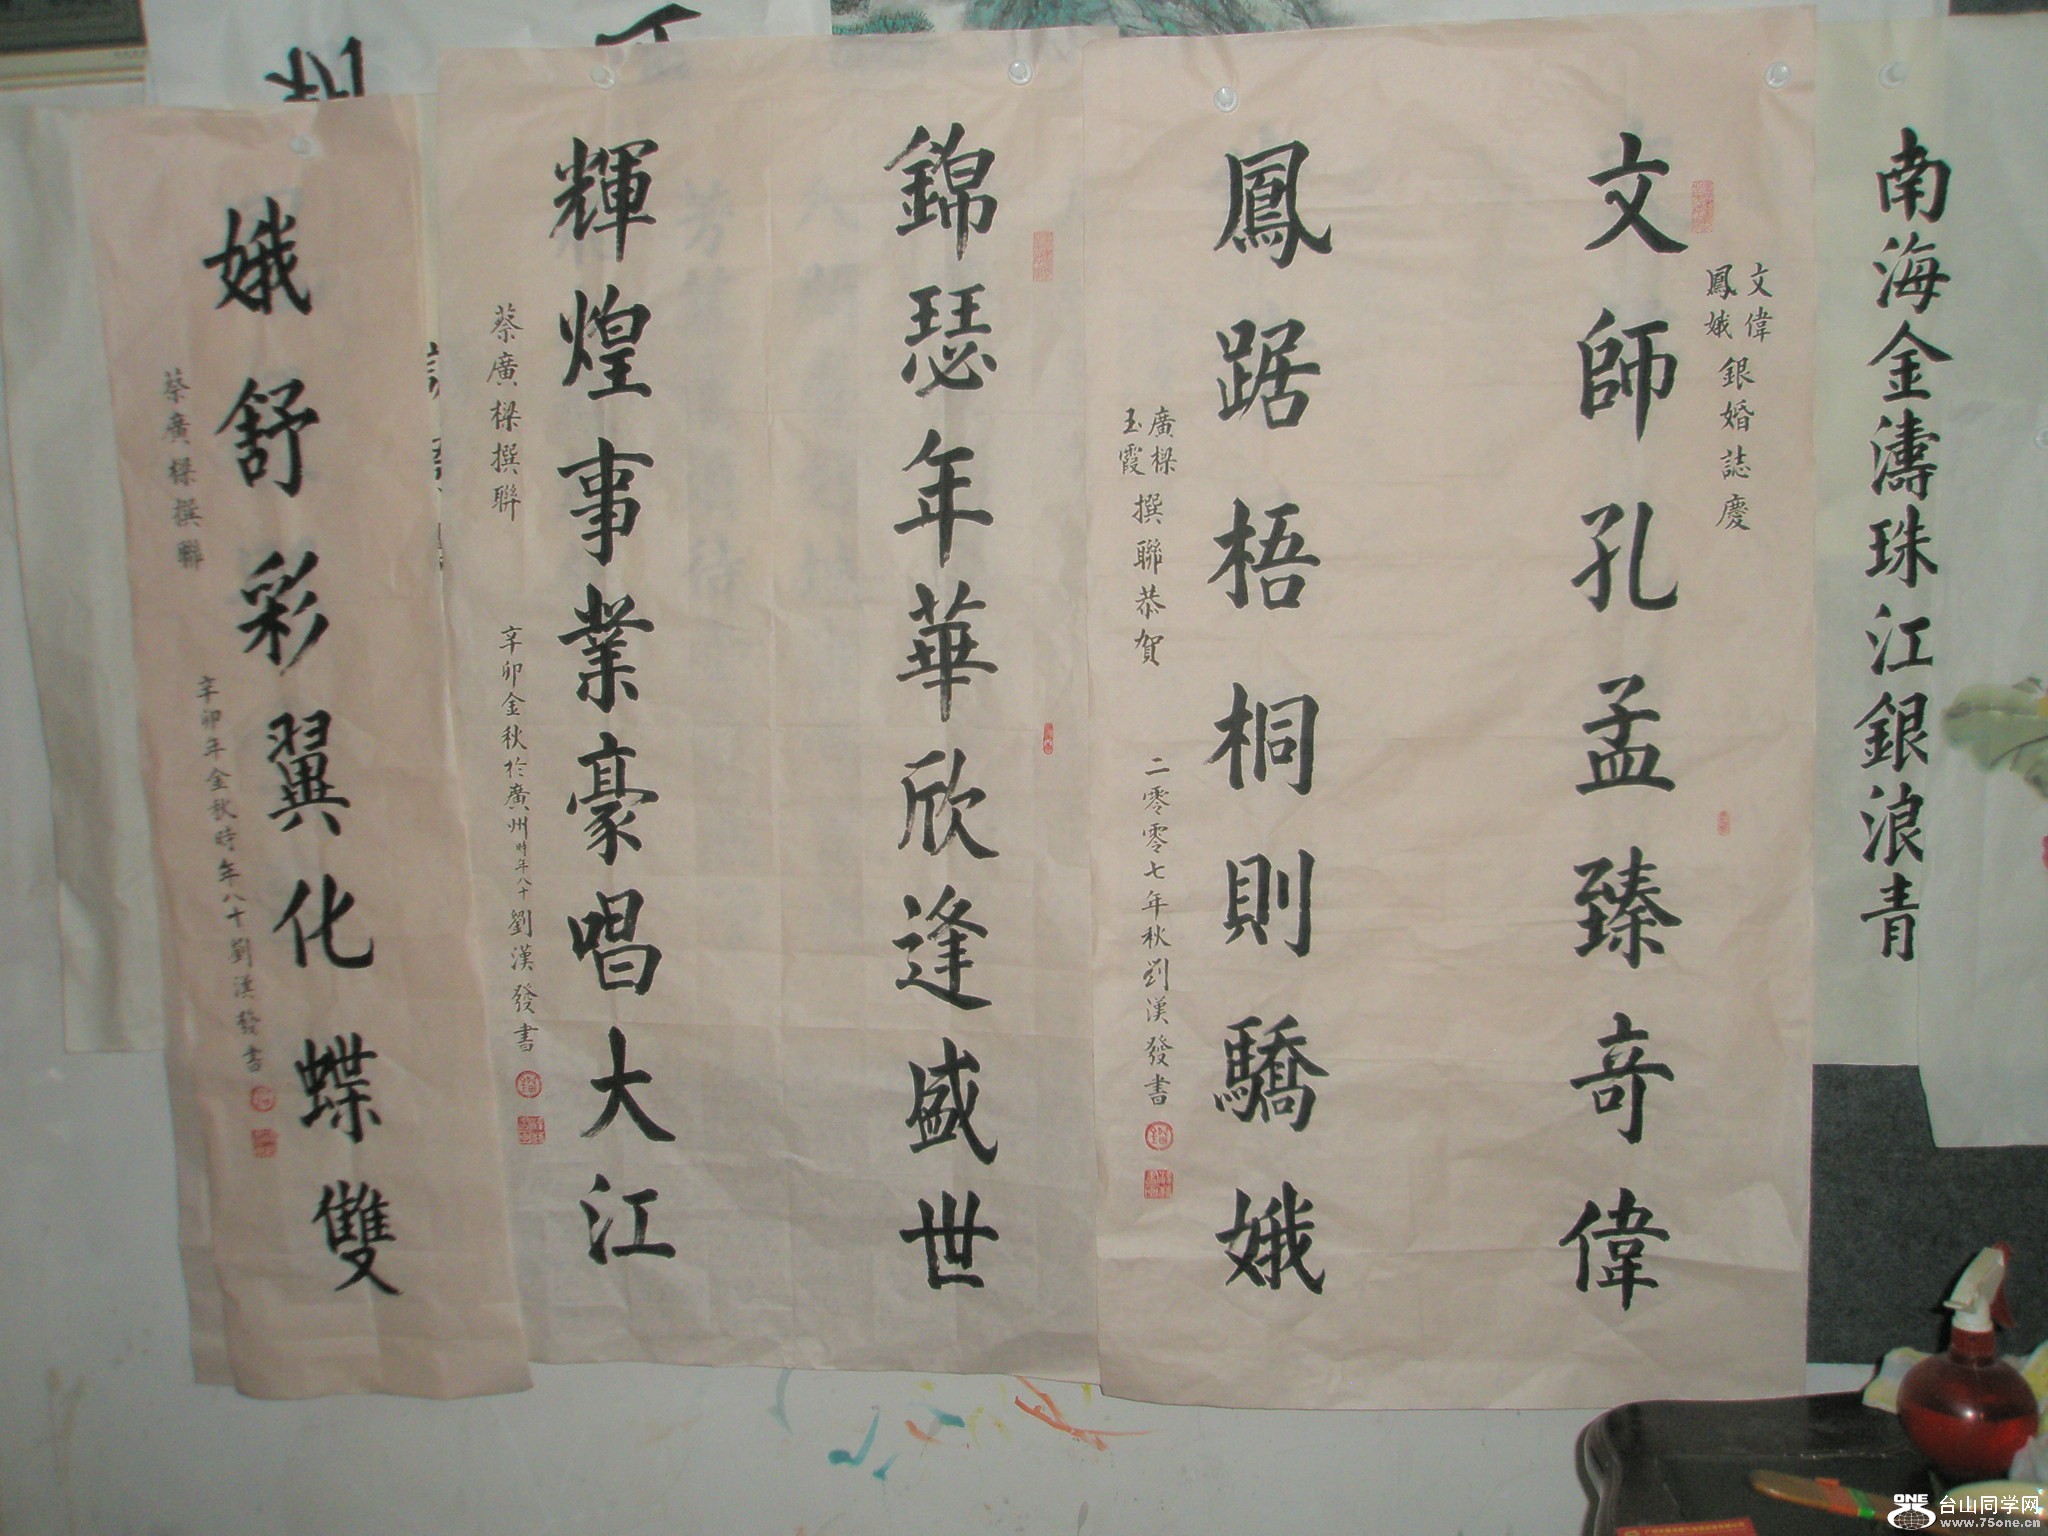 南海金濤珠江銀浪青
文偉
鳳娥
銀婚誌慶
文師孔孟臻奇偉
鳳踞梧桐則驕娥
廣樑
玉霞
撰聯恭賀
二零零七年秋劉漢發書
錦瑟年華欣逢盛世
輝煌事業豪唱大江
蔡廣樑撰聯
辛卯金秋於廣州時年八十劉漢發書
娥舒彩翼化蝶雙
蔡廣樑撰聯
辛卯年金秋時年八十劉漢發書
ONE 台山同学网
www.75one.cn